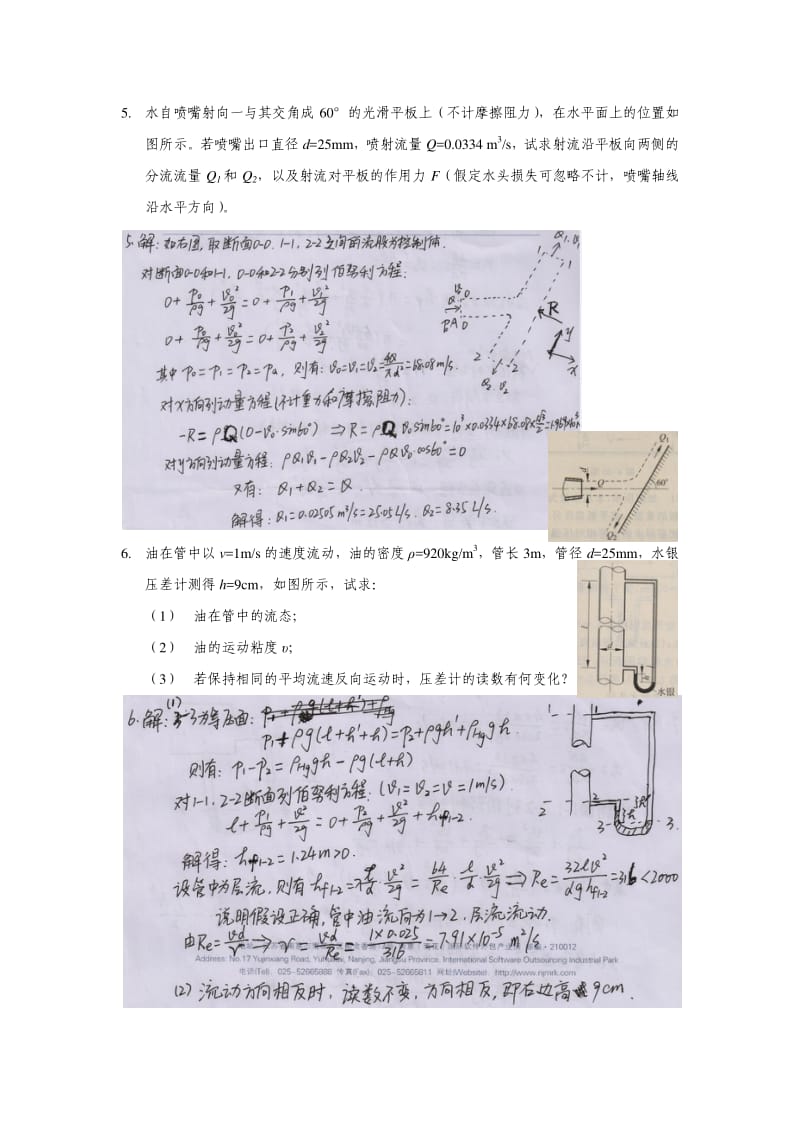 5. 水自喷嘴射向一与其交角成 60°的光滑平板上（不计摩擦阻力），在水平面上的位置如
图所示。若喷嘴出口直径 d=25mm，喷射流量 Q=0.0334 m³/s，试求射流沿平板向两侧的
分流流量 Q₁和 Q₂，以及射流对平板的作用力 F（假定水头损失可忽略不计，喷嘴轴线
沿水平方向）。
5.解：如右图，取断面0-0、1-1，2-2之间的流股为控制体.
对断面0-0和1-1，0-0和2-2分别列伯努利方程：
0+P₀/ρg+v₀²/2g=0+P₁/ρg+v₁²/2g
0+P₀/ρg+v₀²/2g=0+P₂/ρg+v₂²/2g
其中 P₀=P₁=P₂=Pa，则有：v₀=v₁=v₂=4Q/πd²=68.08m/s.
对x方向列动量方程(不计重力和摩擦阻力)：
-R=ρQ(0-v₀·sin60°) ⇒R=ρQv₀sin60°=10³×0.0334×68.08×√3/2
对y方向列动量方程：ρQ₁v₁-ρQ₂v₂-ρQv₀·cos60°=0
又有：Q₁+Q₂=Q.
解得：Q₁=0.02505m³/s=25.05L/s，Q₂=8.35L/s.
R
y
x
Q
Q₁
60°
Q₂
6. 油在管中以 v=1m/s 的速度流动，油的密度 ρ=920kg/m³，管长 3m，管径 d=25mm，水银
压差计测得 h=9cm，如图所示，试求：
（1） 油在管中的流态；
（2） 油的运动粘度 υ；
（3） 若保持相同的平均流速反向运动时，压差计的读数有何变化？
l
d
h
水银
6.解：(1) 3-3为等压面：
P₁+ρg(l+h'+h)=P₂+ρgh'+ρHggh.
则有：P₁-P₂=ρHggh-ρg(l+h)
对1-1，2-2断面列伯努利方程：(v₁=v₂=v=1m/s)
l+P₁/ρg+v²/2g=0+P₂/ρg+v²/2g+hf1-2
解得：hf1-2=1.24m>0.
设管中为层流，则有hf1-2=λ·l/d·v²/2g=64/Re·l/d·v²/2g⇒Re=32lv²/dghf1-2=316<2000
说明假设正确，管中油流向为1→2，层流流动.
由Re=vd/ν⇒ν=vd/Re=1×0.025/316=7.91×10⁻⁵m²/s
Address: No.17 Yujinxiang Road, Yuhuatai, Nanjing, Jiangsu Province. International Software Outsourcing Industrial Park
电话(Tel): 025-52665888 传真(Fax): 025-52665811 网址(Website): http://www.njmrk.com
(2)流动方向相反时，读数不变，方向相反，即右边高9cm.